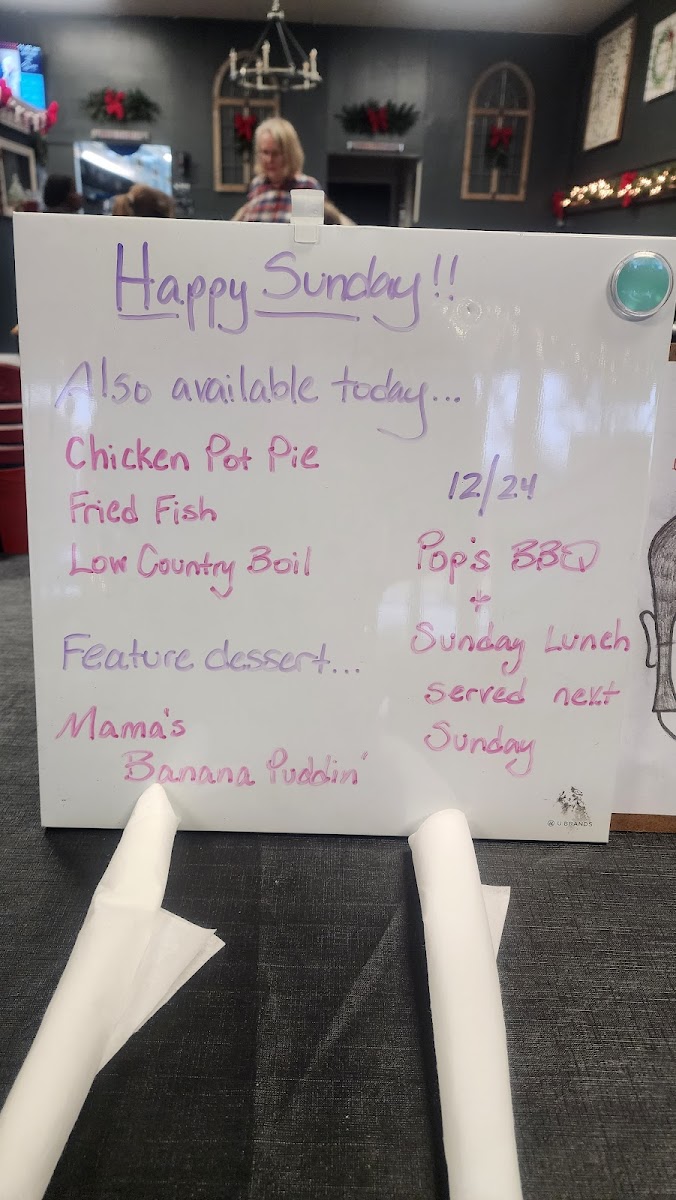 Happy Sunday!!
Also available today...
Chicken Pot Pie
Fried Fish
Low Country Boil
Feature dessert...
Mama's
Banana Puddin'
12/24
Pop's BBQ
+
Sunday Lunch
served next
Sunday
U BRANDS